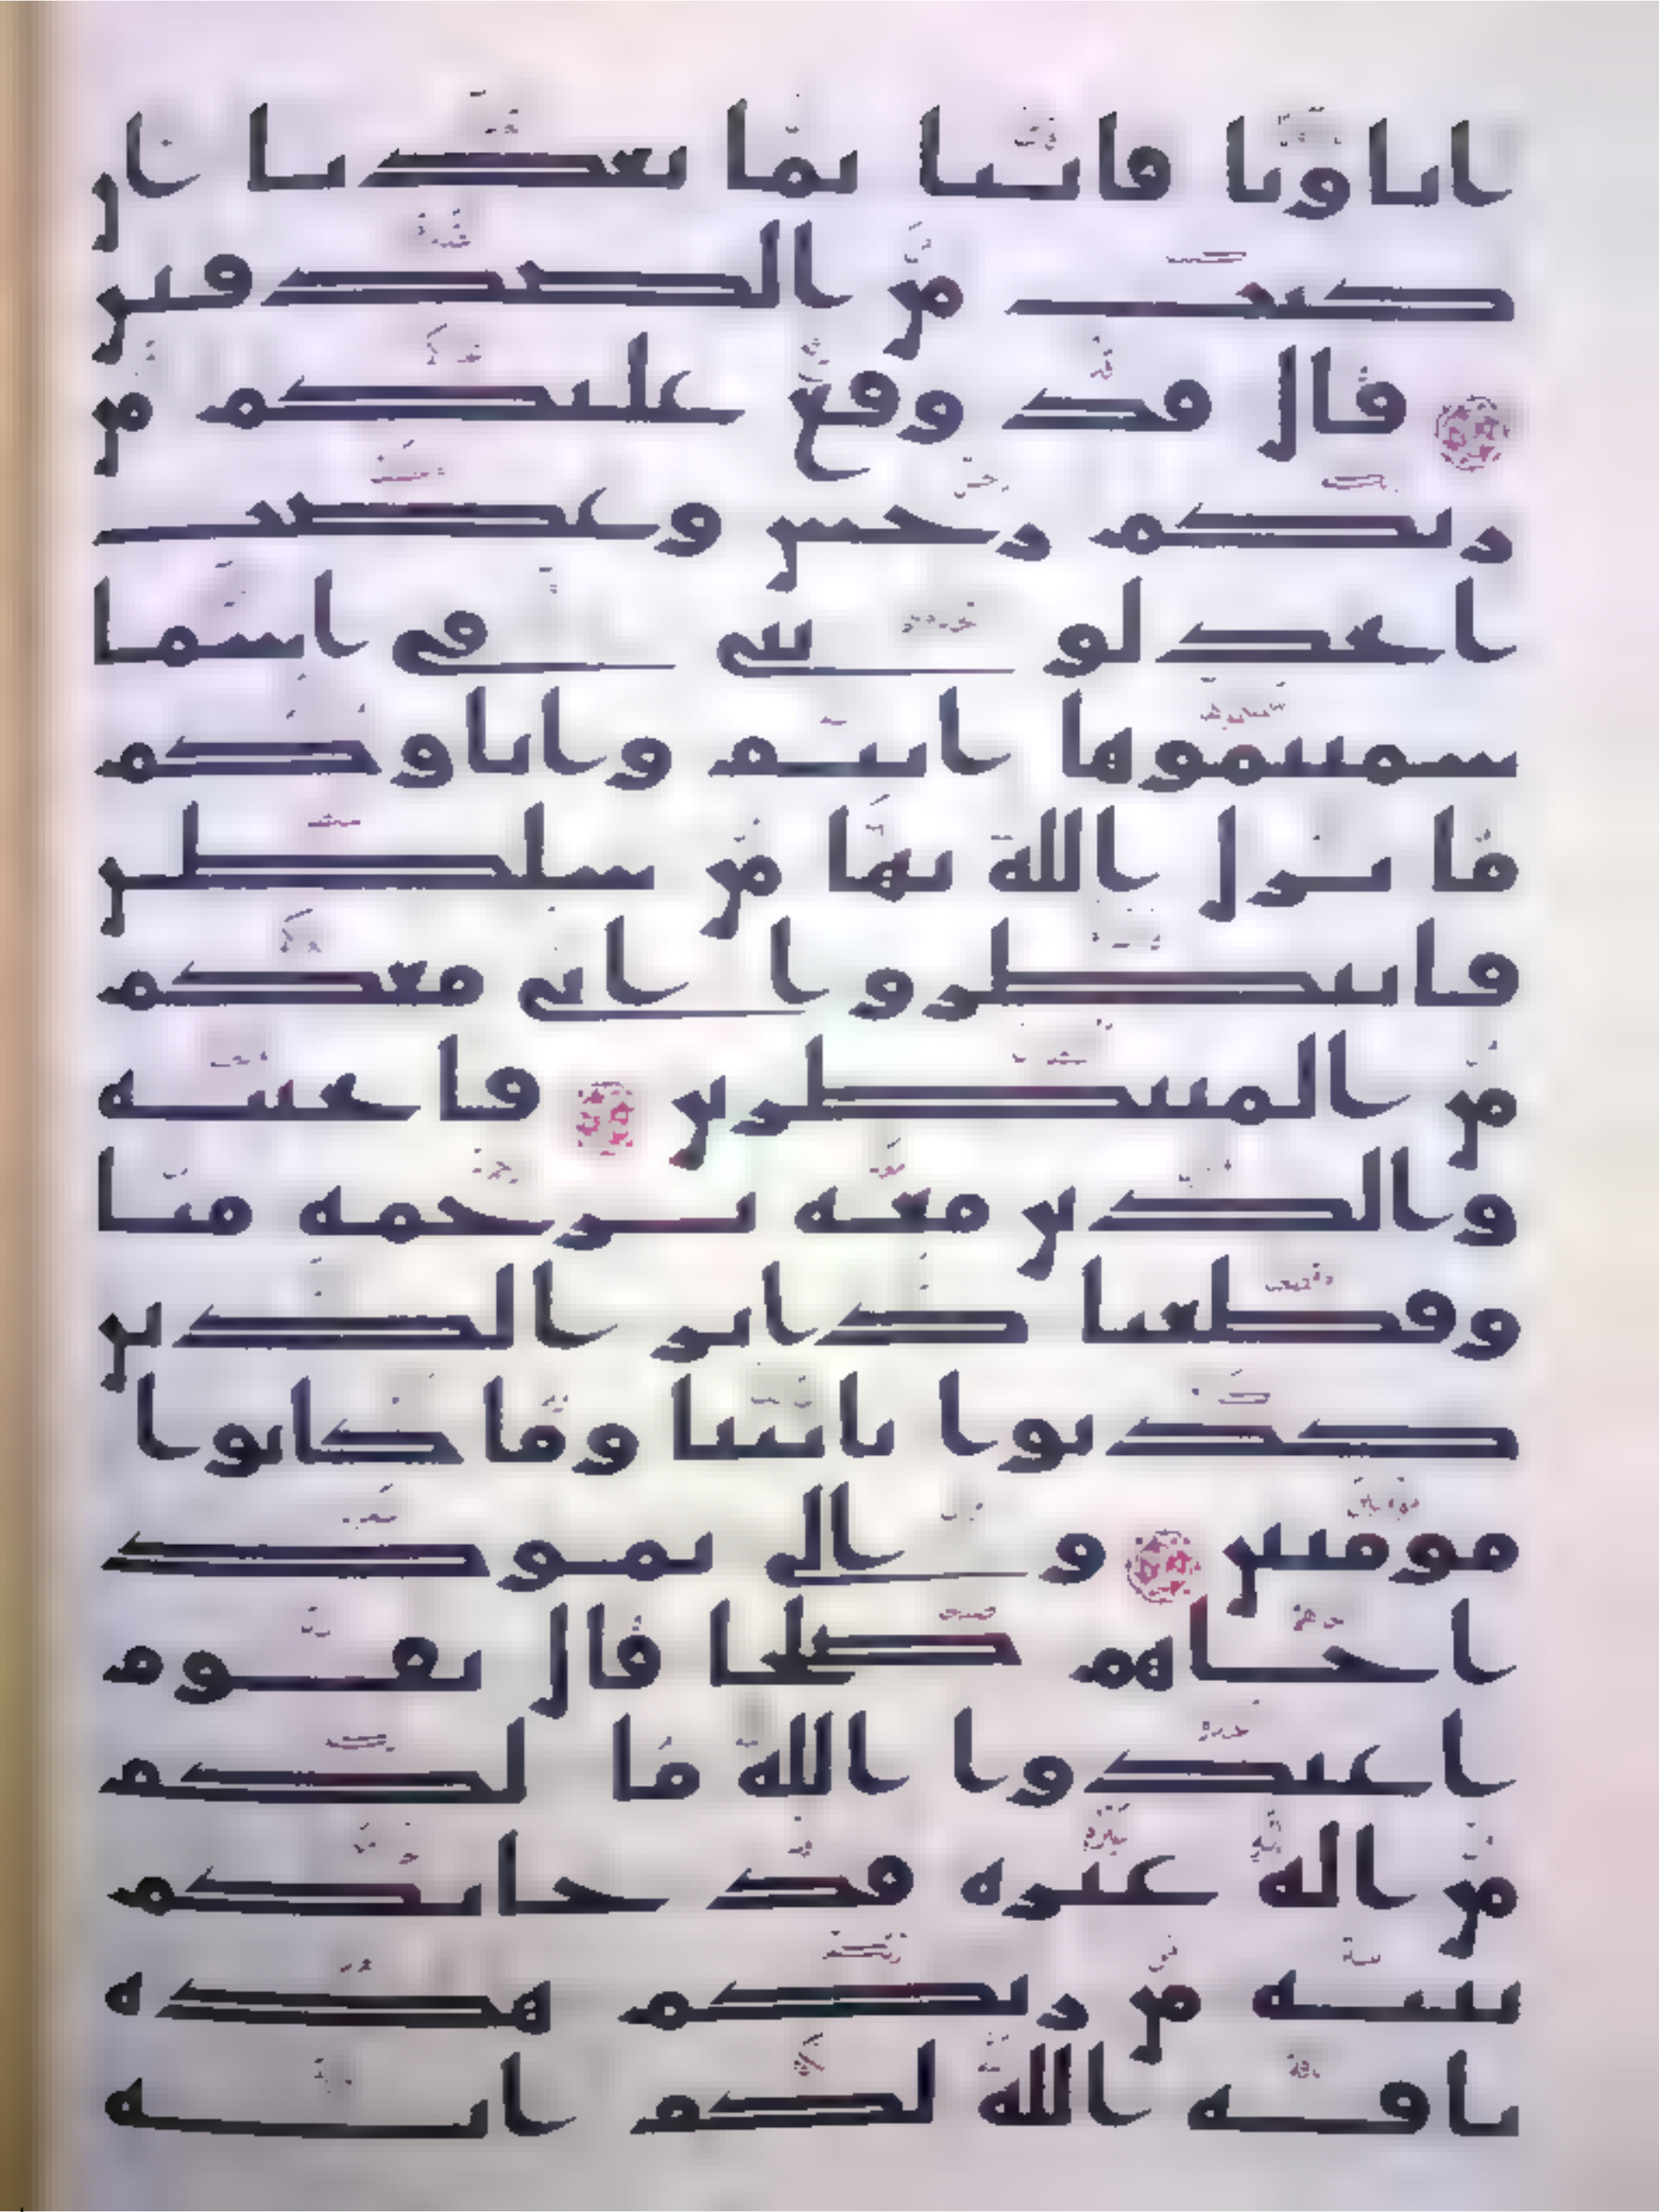 اباونا فاتنا بما تعدنا ان
كنت من الصدقين
قال قد وقع عليكم من
ربكم رجس وغضب
اتجدلونني في اسما
سميتموها انتم واباوكم
ما نزل الله بها من سلطن
فانتظروا اني معكم
من المنتظرين فانجينه
والذين معه برحمة منا
وقطعنا دابر الذين
كذبوا بايتنا وما كانوا
مومنين والى ثمود
اخاهم صلحا قال يقوم
اعبدوا الله ما لكم
من اله غيره قد جاتكم
بينة من ربكم هذه
ناقة الله لكم اية